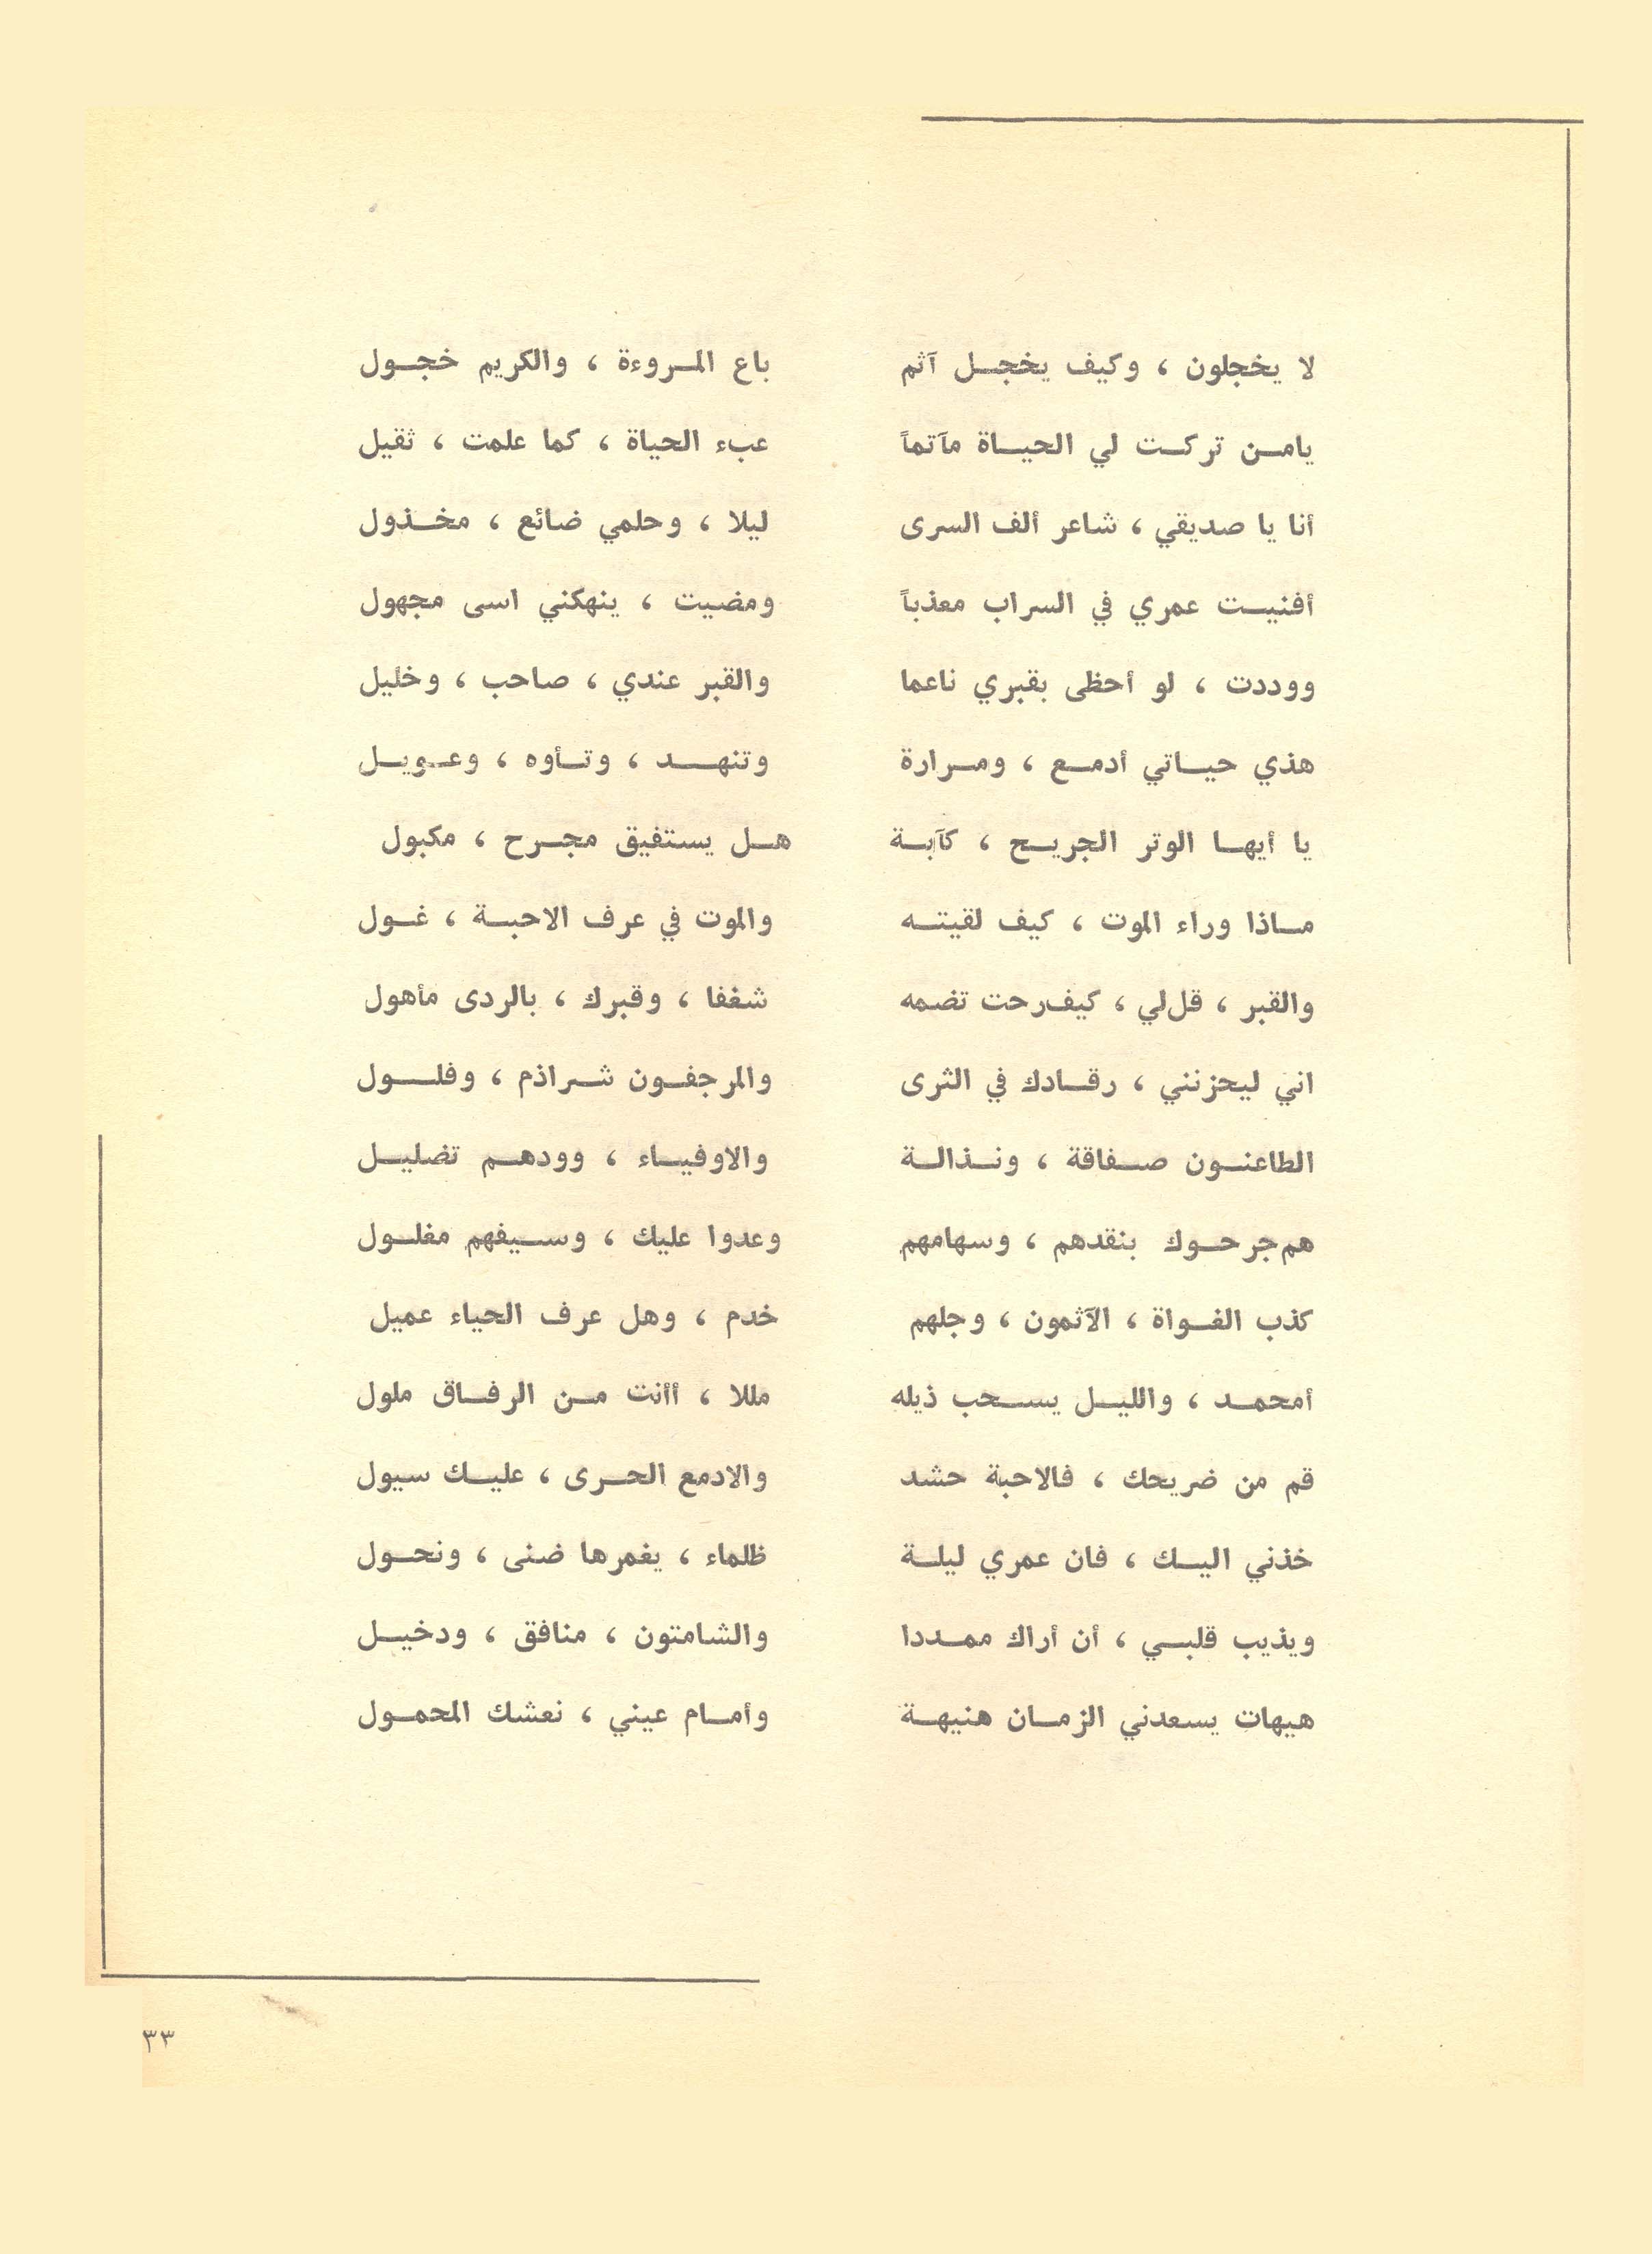 لا يخجلون ، وكيف يخجل آثم باع المروءة ، والكريم خجول
يامن تركت لي الحياة مآتماً عبء الحياة ، كما علمت ، ثقيل
أنا يا صديقي ، شاعر ألف السرى ليلا ، وحلمي ضائع ، مخذول
أفنيت عمري في السراب معذباً ومضيت ، ينهكني اسى مجهول
ووددت ، لو أحظى بقبري ناعما والقبر عندي ، صاحب ، وخليل
هذي حياتي أدمع ، ومرارة وتنهد ، وتأوه ، وعويل
يا أيها الوتر الجريح ، كآبة هل يستفيق مجرح ، مكبول
ماذا وراء الموت ، كيف لقيته والموت في عرف الاحبة ، غول
والقبر ، قل لي ، كيف رحت تضمه شغفا ، وقبرك ، بالردى مأهول
اني ليحزنني ، رقادك في الثرى والمرجفون شراذم ، وفلول
الطاعنون صفاقة ، ونذالة والاوفياء ، وودهم تضليل
هم جرحوك بنقدهم ، وسهامهم وعدوا عليك ، وسيفهم مفلول
كذب الغواة ، الآثمون ، وجلهم خدم ، وهل عرف الحياء عميل
أمحمد ، والليل يسحب ذيله مللا ، أأنت من الرفاق ملول
قم من ضريحك ، فالاحبة حشد والادمع الحرى ، عليك سيول
خذني اليك ، فان عمري ليلة ظلماء ، يغمرها ضنى ، ونحول
ويذيب قلبي ، أن أراك ممددا والشامتون ، منافق ، ودخيل
هيهات يسعدني الزمان هنيهة وأمام عيني ، نعشك المحمول
٣٣